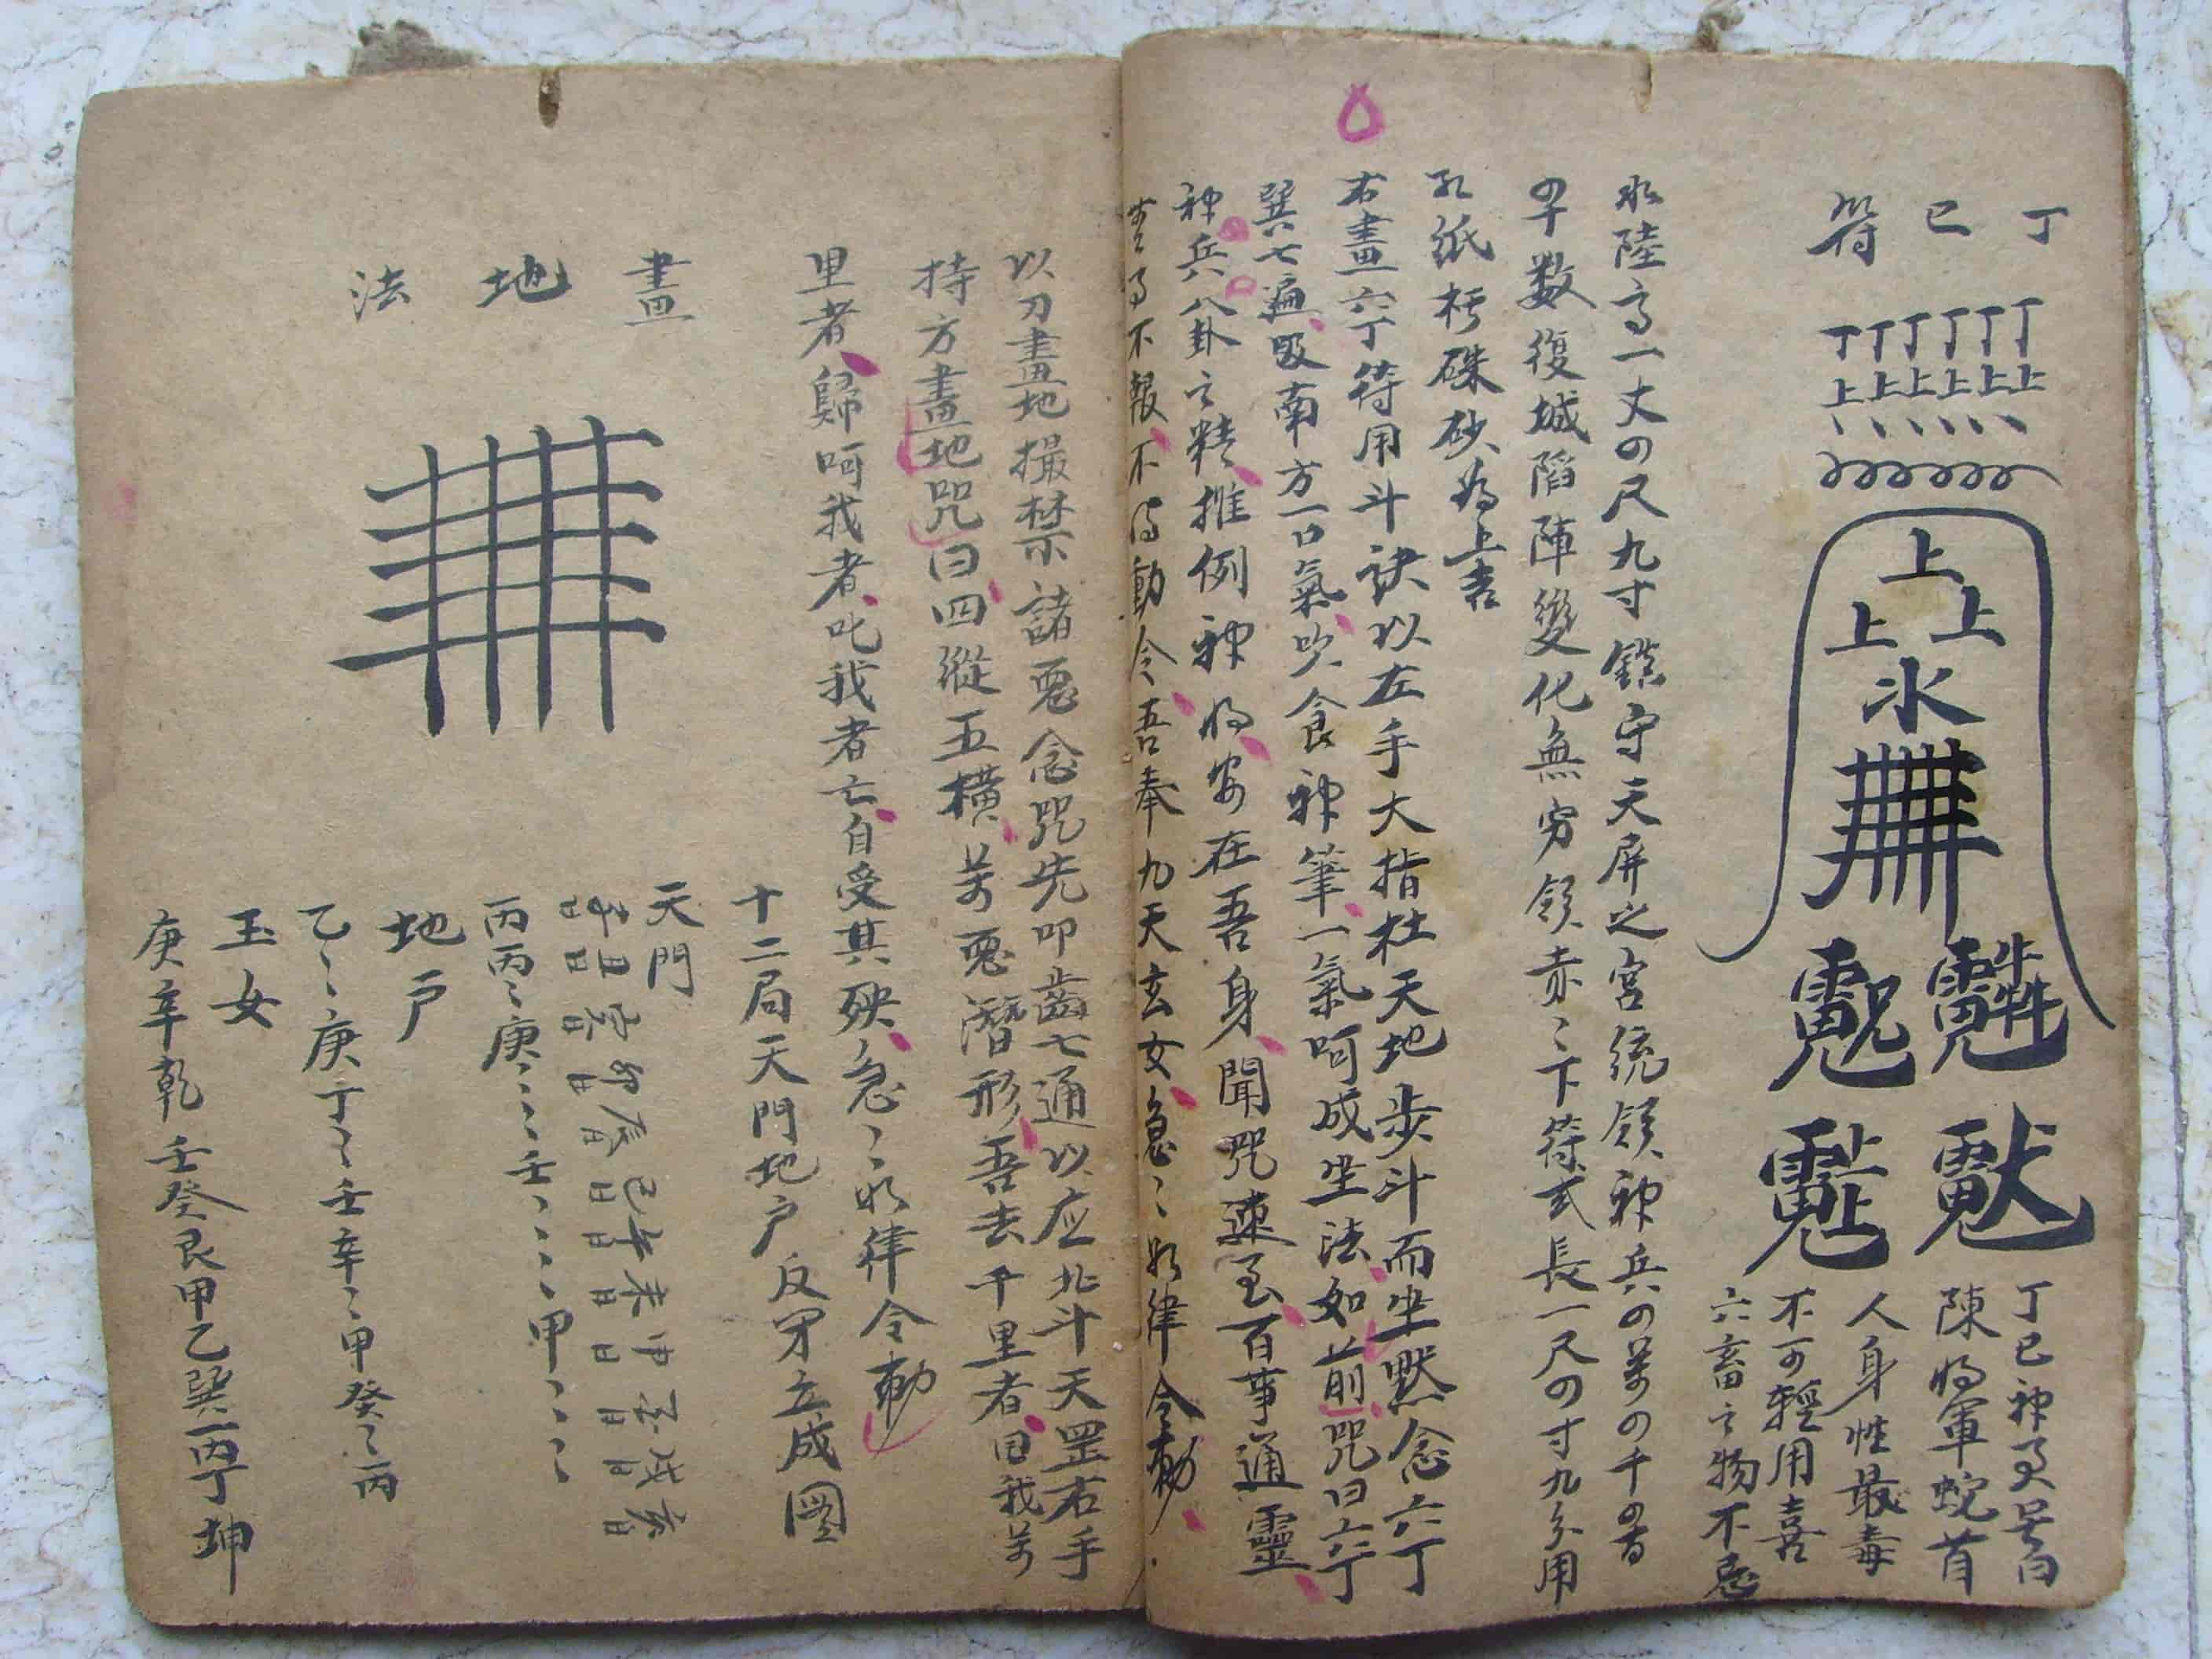 丁巳符
丁丁丁丁丁丁
上上上上上上
上
上上
水
丁巳神
陳将軍蛇首
人身性最毒
不可輕用喜
六畜之物不忌
水陸高一丈四尺九寸鎮守天屏之宮統領神兵四萬四千四百
四十数復城陷陣變化無穷領赤〻下符式長一尺四寸九分用
紙硃砂为上吉
右畫六丁符用斗訣以左手大指杜天地步斗而坐默念六丁
巽七遍吸南方一口氣吹食神筆一氣呵成坐法如前咒曰六丁
神兵八卦之精推例神将安在吾身聞咒速至百事通靈
不報不得動令吾奉九天玄女急〻如律令勅
以刀畫地撮禁諸惡念咒先叩齒七通以应北斗天罡右手
持方畫地咒曰四縱五橫萬惡潛形吾去千里者回我萬
里者歸呵我者叱我者亡自受其殃急〻如律令勅
畫地法
十二局天門地户反牙立成圖
天門
子日丑日寅日卯日辰日巳日午日未日申日酉日戌日亥日
丙丙〻庚〻〻壬〻〻〻甲〻〻〻
地户
乙〻〻庚丁〻壬辛〻甲癸〻丙
玉女
庚辛乾壬癸艮甲乙巽丙丁坤